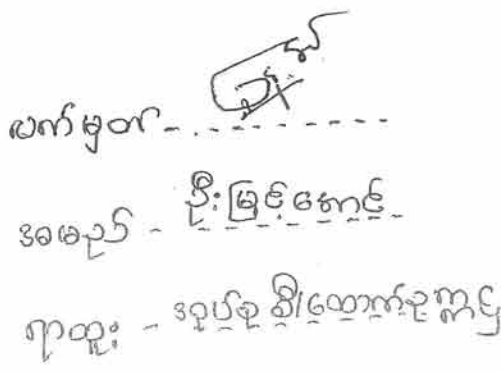 လက်မှတ် - 
အမည် - ဦးမြင့်အောင်
ရာထူး - အုပ်စု ဒီ၊ထောက်ဥက္ကဋ္ဌ